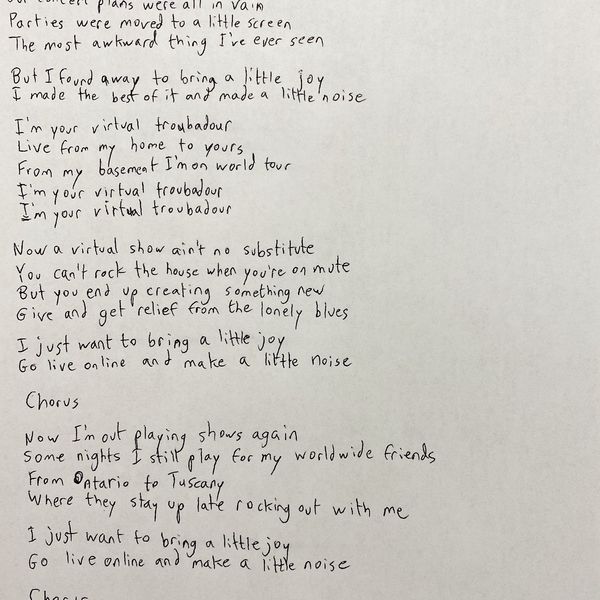 our concert plans were all in vain
Parties were moved to a little screen
The most awkward thing I've ever seen
But I found away to bring a little joy
I made the best of it and made a little noise
I'm your virtual troubadour
Live from my home to yours
From my basement I'm on world tour
I'm your virtual troubadour
I'm your virtual troubadour
Now a virtual show ain't no substitute
You can't rock the house when you're on mute
But you end up creating something new
Give and get relief from the lonely blues
I just want to bring a little joy
Go live online and make a little noise
Chorus
Now I'm out playing shows again
Some nights I still play for my worldwide friends
From Ontario to Tuscany
Where they stay up late rocking out with me
I just want to bring a little joy
Go live online and make a little noise
Chorus